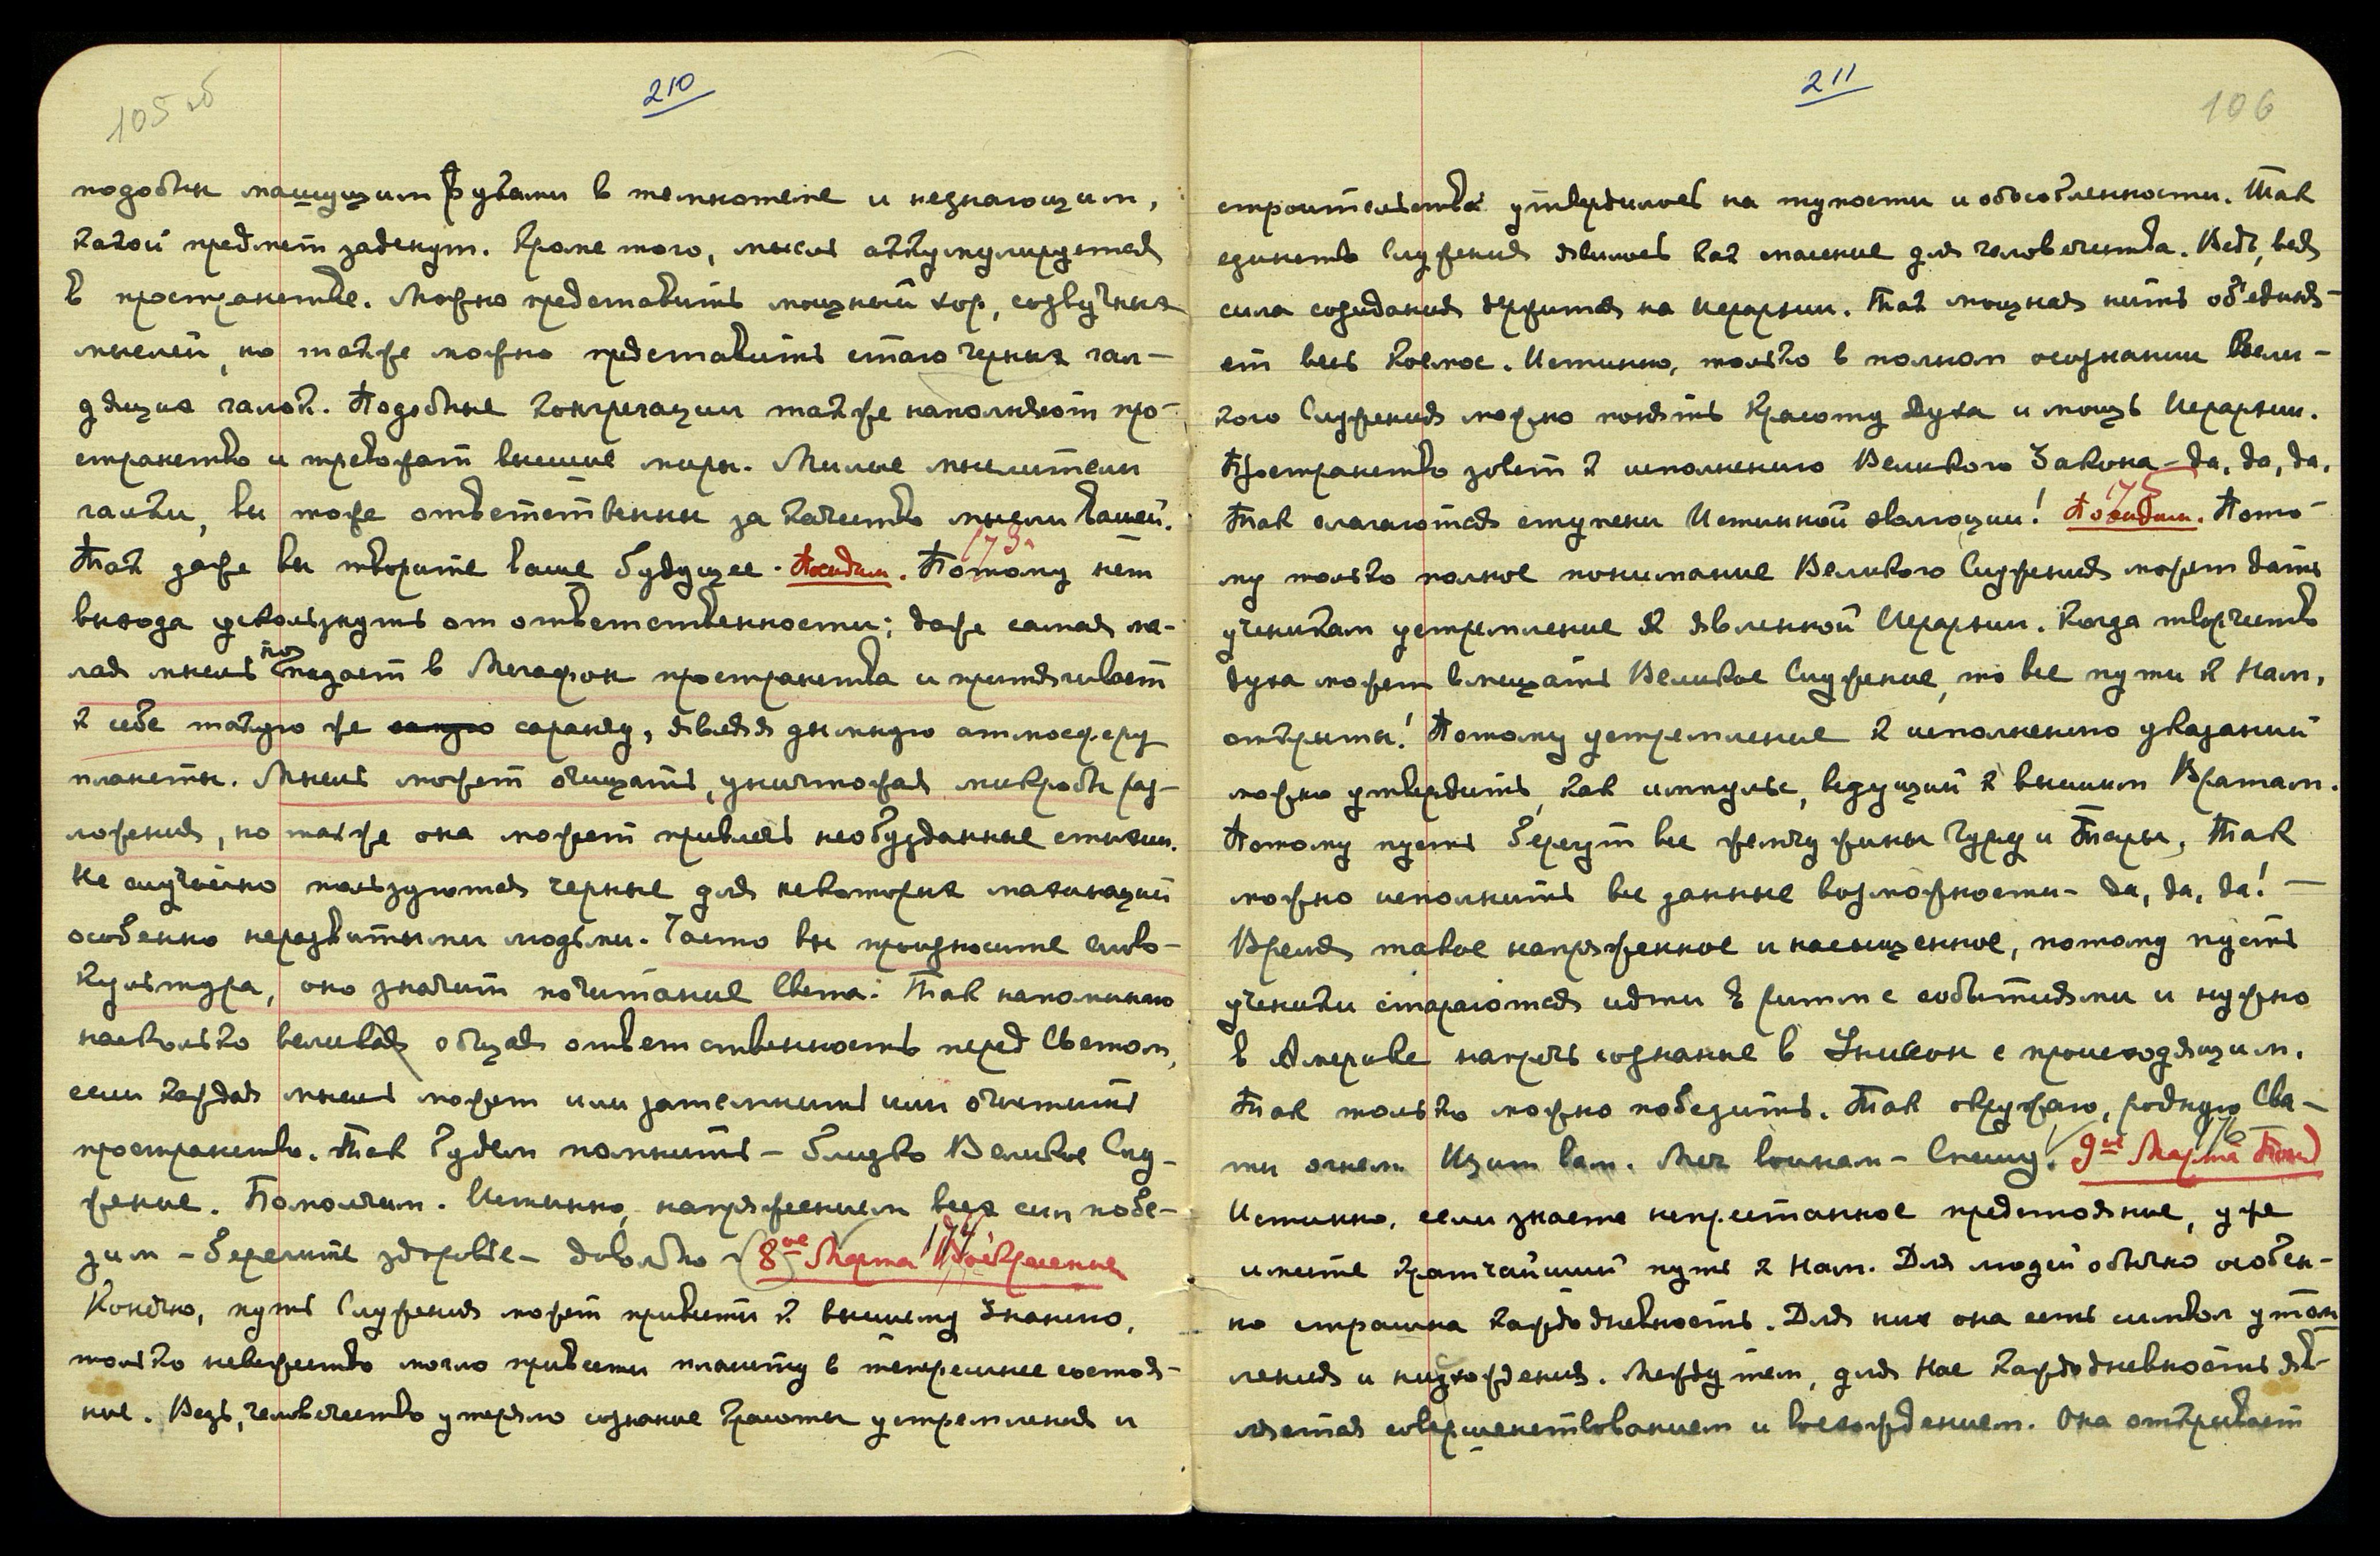 105 об
210
подобны машущим руками в темноте и незнающим,
какой предмет заденут. Кроме того, мысль аккумулируется
в пространстве. Можно представить мощный хор, созвучных
мыслей, но также можно представить стаю черных гал-
дящих галок. Подобные конгрегации также наполняют про-
странство и тревожат высшие миры. Милые мыслители
галки, вы тоже ответственны за качество мысли вашей.
Так даже вы творите ваше будущее. Посидим. 173. Потому нет
выхода ускользнуть от ответственности; даже самая ма-
лая мысль попадает в Мегафон пространства и притягивает
к себе такую же самую саранчу, являя дымную атмосферу
планеты. Мысль может очищать, уничтожая микробы раз-
ложения, но также она может привлечь необузданные стихии.
Не случайно пользуются черные для некоторых махинаций
особенно неразвитыми людьми. Часто вы произносите слово-
культура, оно значит почитание Света. Так напоминаю
насколько великая общая ответственность перед Светом,
если каждая мысль может или затемнить или очистить
пространство. Так будем помнить - близко Великое Слу-
жение. Помолчим. Истинно, напряжением всех сил побе-
дим - берегите здоровье - довольно 174 8ое Марта Воскресение
Конечно, путь Служения может привести к высшему Знанию,
только невежество могло привести планету в теперешнее состоя-
ние. Ведь, человечество утеряло сознание красоты устремления и
211
106
строительства утвердилось на тупости и обособленности. Так
единство Служения явилось как спасение для человечества. Ведь, вся
сила созидания держится на Иерархии. Так мощная нить объединя-
ет весь Космос. Истинно, только в полном осознании Вели-
кого Служения можно понять Красоту Духа и мощь Иерархии.
Пространство зовет к исполнению Великого Закона - да, да, да.
Так слагаются ступени Истинной эволюции! Посидим. 175 Пото-
му только полное понимание Великого Служения может дать
ученикам устремление к явленной Иерархии. Когда творчество
духа может вмещать Великое Служение, то все пути к Нам,
открыты! Потому устремление к исполнению указаний
можно утвердить, как импульс, ведущий к высшим Вратам.
Потому пусть берегут все жемчужины Гуру и Тары. Так
можно исполнить все данные возможности - да, да, да! -
Время такое напряженное и насыщенное, потому пусть
ученики стараются идти в ритм с событиями и нужно
в Америке напрячь сознание в Унисон с происходящим.
Так только можно победить. Так окружаю, родную Свя-
ти огнем Шлю вам. Меч воинам - Спешу. 176 9ое Марта Пон
Истинно, если знаете непрестанное предстояние, уже
имеете кратчайший путь к Нам. Для людей обычно особен-
но страшна каждодневность. Для них она есть символ утом
ления и нисхождения. Между тем, для Нас каждодневность яв-
ляется совершенствованием и восхождением. Она открывает